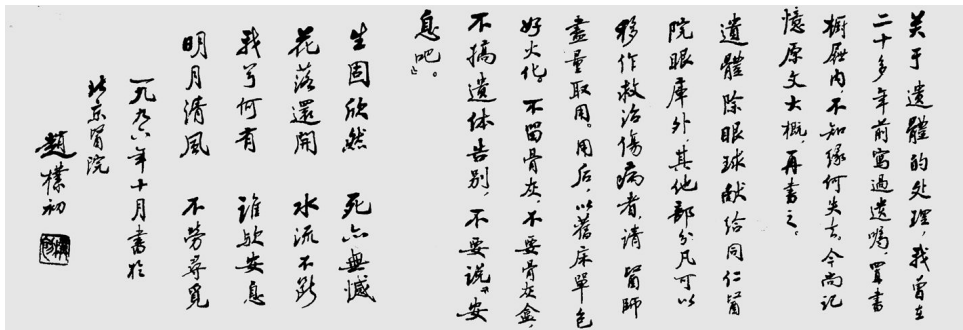 关于遺體的处理，我曾在
二十多年前寫過遺囑，置書
橱屜内，不知缘何失去。今尚记
憶原文大概，再書之。
遺體除眼球献给同仁醫
院眼庫外，其他部分凡可以
移作救治傷病者，请醫師
盡量取用。用后，以舊床單包
好火化。不留骨灰，不要骨灰盒，
不搞遺体告别，不要说“安
息吧”。
生固欣然 死亦無憾
花落還開 水流不断
我兮何有 谁欤安息
明月清風 不勞尋覓
一九九六年十月書於
北京醫院
趙樸初